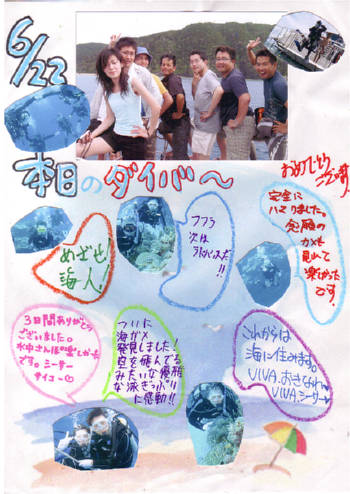 6/22
本日のダイバ〜
おめでとう
ございます
完全に
ハマりました。
念願の
カメも
見れて
楽しかった
です。
フフフ
次は
!!
めざせ!
海人!
3日間ありがとう
ございました。
水中さんぽ楽しかった
です。シーサー
サイコー
ついに
海ガメ
発見しました!
空を飛んでる
みたいな優雅
な泳ぎっぷり
に感動!!
これからは
海に住みます。
VIVA.おきなわ
VIVA.シーサー